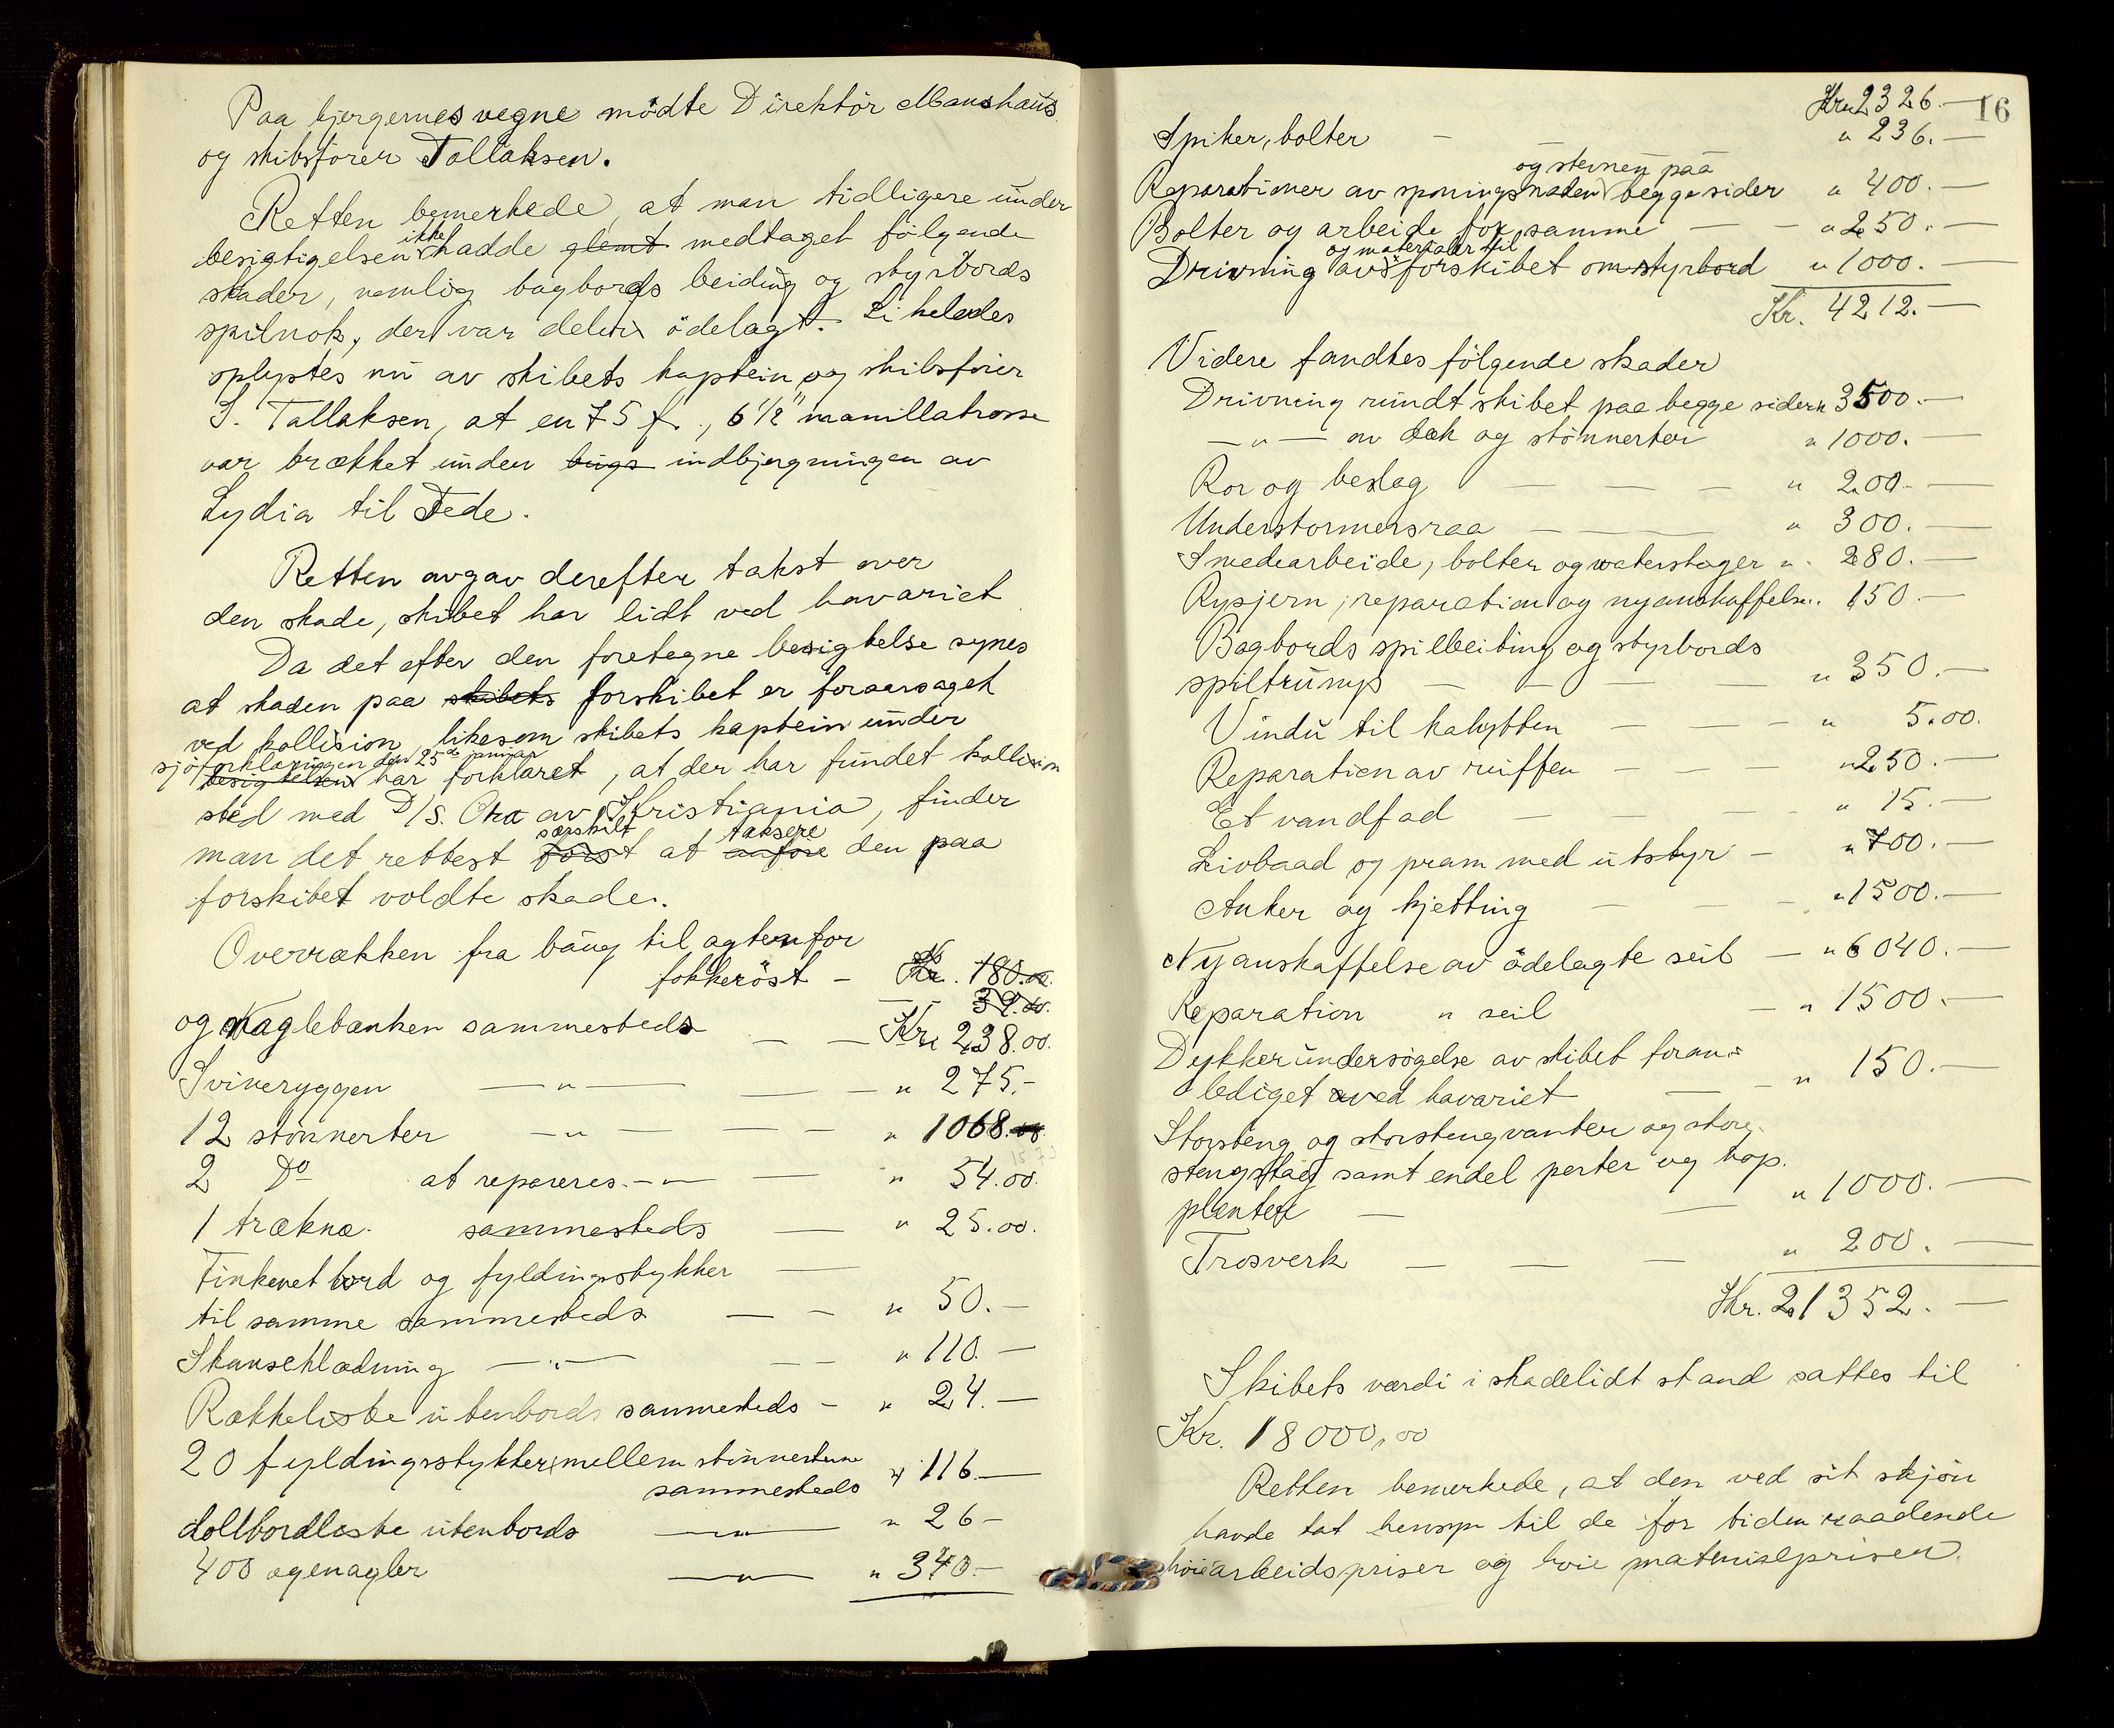 Paa bjergernes vegne mödte Direktör Manshaus
og skibsförer Tallaksen.
Retten bemerkede, at man tidligere under
besigtigelsen ikke hadde glemt medtaget fölgende
skader, nemlig bagbords beiding og styrbords
spilnok, der var delvis ödelagt. Likeledes
oplystes nu av skibets kaptein og skibsförer
S. Tallaksen, at en 75 f., 6 1/2" manillatrosse
var brækket under bugs indbjergningen av
Lydia til Fede.
Retten avgav derefter takst over
den skade, skibet har lidt ved havariet
Da det efter den foretagne besigtelse synes
at skaden paa skibets forskibet er foraarsaget
ved kollision, likesom skibets kaptein under
sjöforklaringen den 25de januar
besigtelsen har forklaret, at der har fundet kollision
sted med D/S. Ora av Kristiania, finder
særskilt taksere
man det rettest först at anföre den paa
forskibet voldte skade.
Overrækken fra baug til agtenfor
fokkeröst - Kr. 180.00
39.00
og Naglebanken sammesteds — — Kr. 238.00.
Svineryggen —"— — — " 275.-
12 stönnerter —"— — — " 1068.00
2 Do at repareres. —"— — " 54.00.
1 trækna. sammesteds — " 25.00.
Finkenet bord og fyldingsstykker —
til samme sammesteds — — " 50.—
Skanseklædning —"— — — " 110.—
Rækkeliste utenbords sammesteds - " 24.—
20 fyldingsstykker mellem stönnerterne
sammesteds " 116.—
dollbordliste utenbords —"— " 26-
400 egenagler —"— " 340.-
16
Kr. 2326.—
Spiker, bolter - " 236.—
og stevnen paa
Reparationer av sponingsnaden begge sider " 400.—
Bolter og arbeide for samme — - " 250.—
og materialer til
Drivning av forskibet om styrbord " 1000.—
Kr. 4212.—
Videre fandtes fölgende skader
Drivning rundt skibet paa begge sider " 3500.—
—"— av dæk og stönnerter " 1000.—
Ror og beslag — — - " 200.—
Understormersraa — — " 300.—
Smedearbeide, bolter og waterstager " 280.—
Rysjern, reparation og nyanskaffelse. 150.—
Bagbords spilbeiting og styrbords
spiltrump — — — — " 350.—
Vindu til kahytten — — - " 5.00.
Reparation av ruffen - — — " 250.—
Et vandfad — — - " 15.—
Livbaad og pram med utstyr - " 700.—
Anker og kjetting - - - " 1500.—
Nyanskaffelse av ödelagte seil — " 6040.—
Reparation " seil — " 1500.—
Dykkerundersögelse av skibet foran-
lediget ved havariet — - " 150.—
Storsteng og storstengvanter og stor-
stengstag samt endel perter og top-
planter — — " 1000.—
Trosverk — — — " 200.—
Kr. 21352.—
Skibets værdi i skadelidt stand sattes til
Kr. 18000,00
Retten bemerkede, at den ved sit skjön
havde tat hensyn til de for tiden raadende
höie arbeidspriser og höie materialpriser.